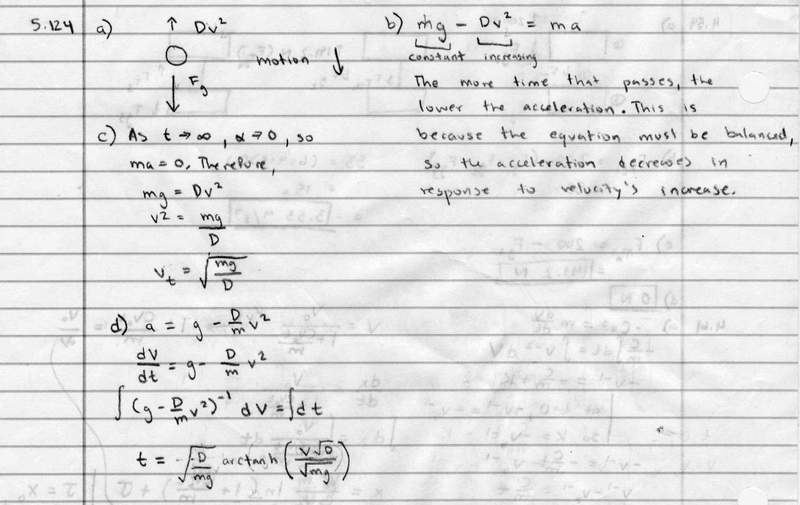 5.124 a) ↑ Dv²
motion ↓
F_g
b) mg - Dv² = ma
constant increasing
The more time that passes, the
lower the acceleration. This is
because the equation must be balanced,
so the acceleration decreases in
response to velocity's increase.
c) As t → ∞, a → 0, so
ma = 0, Therefore,
mg = Dv²
v² = mg/D
v_t = √(mg/D)
d) a = g - D/m v²
dv/dt = g - D/m v²
∫ (g - D/m v²)⁻¹ dv = ∫dt
t = √(D/mg) arctanh (v√D/√mg)